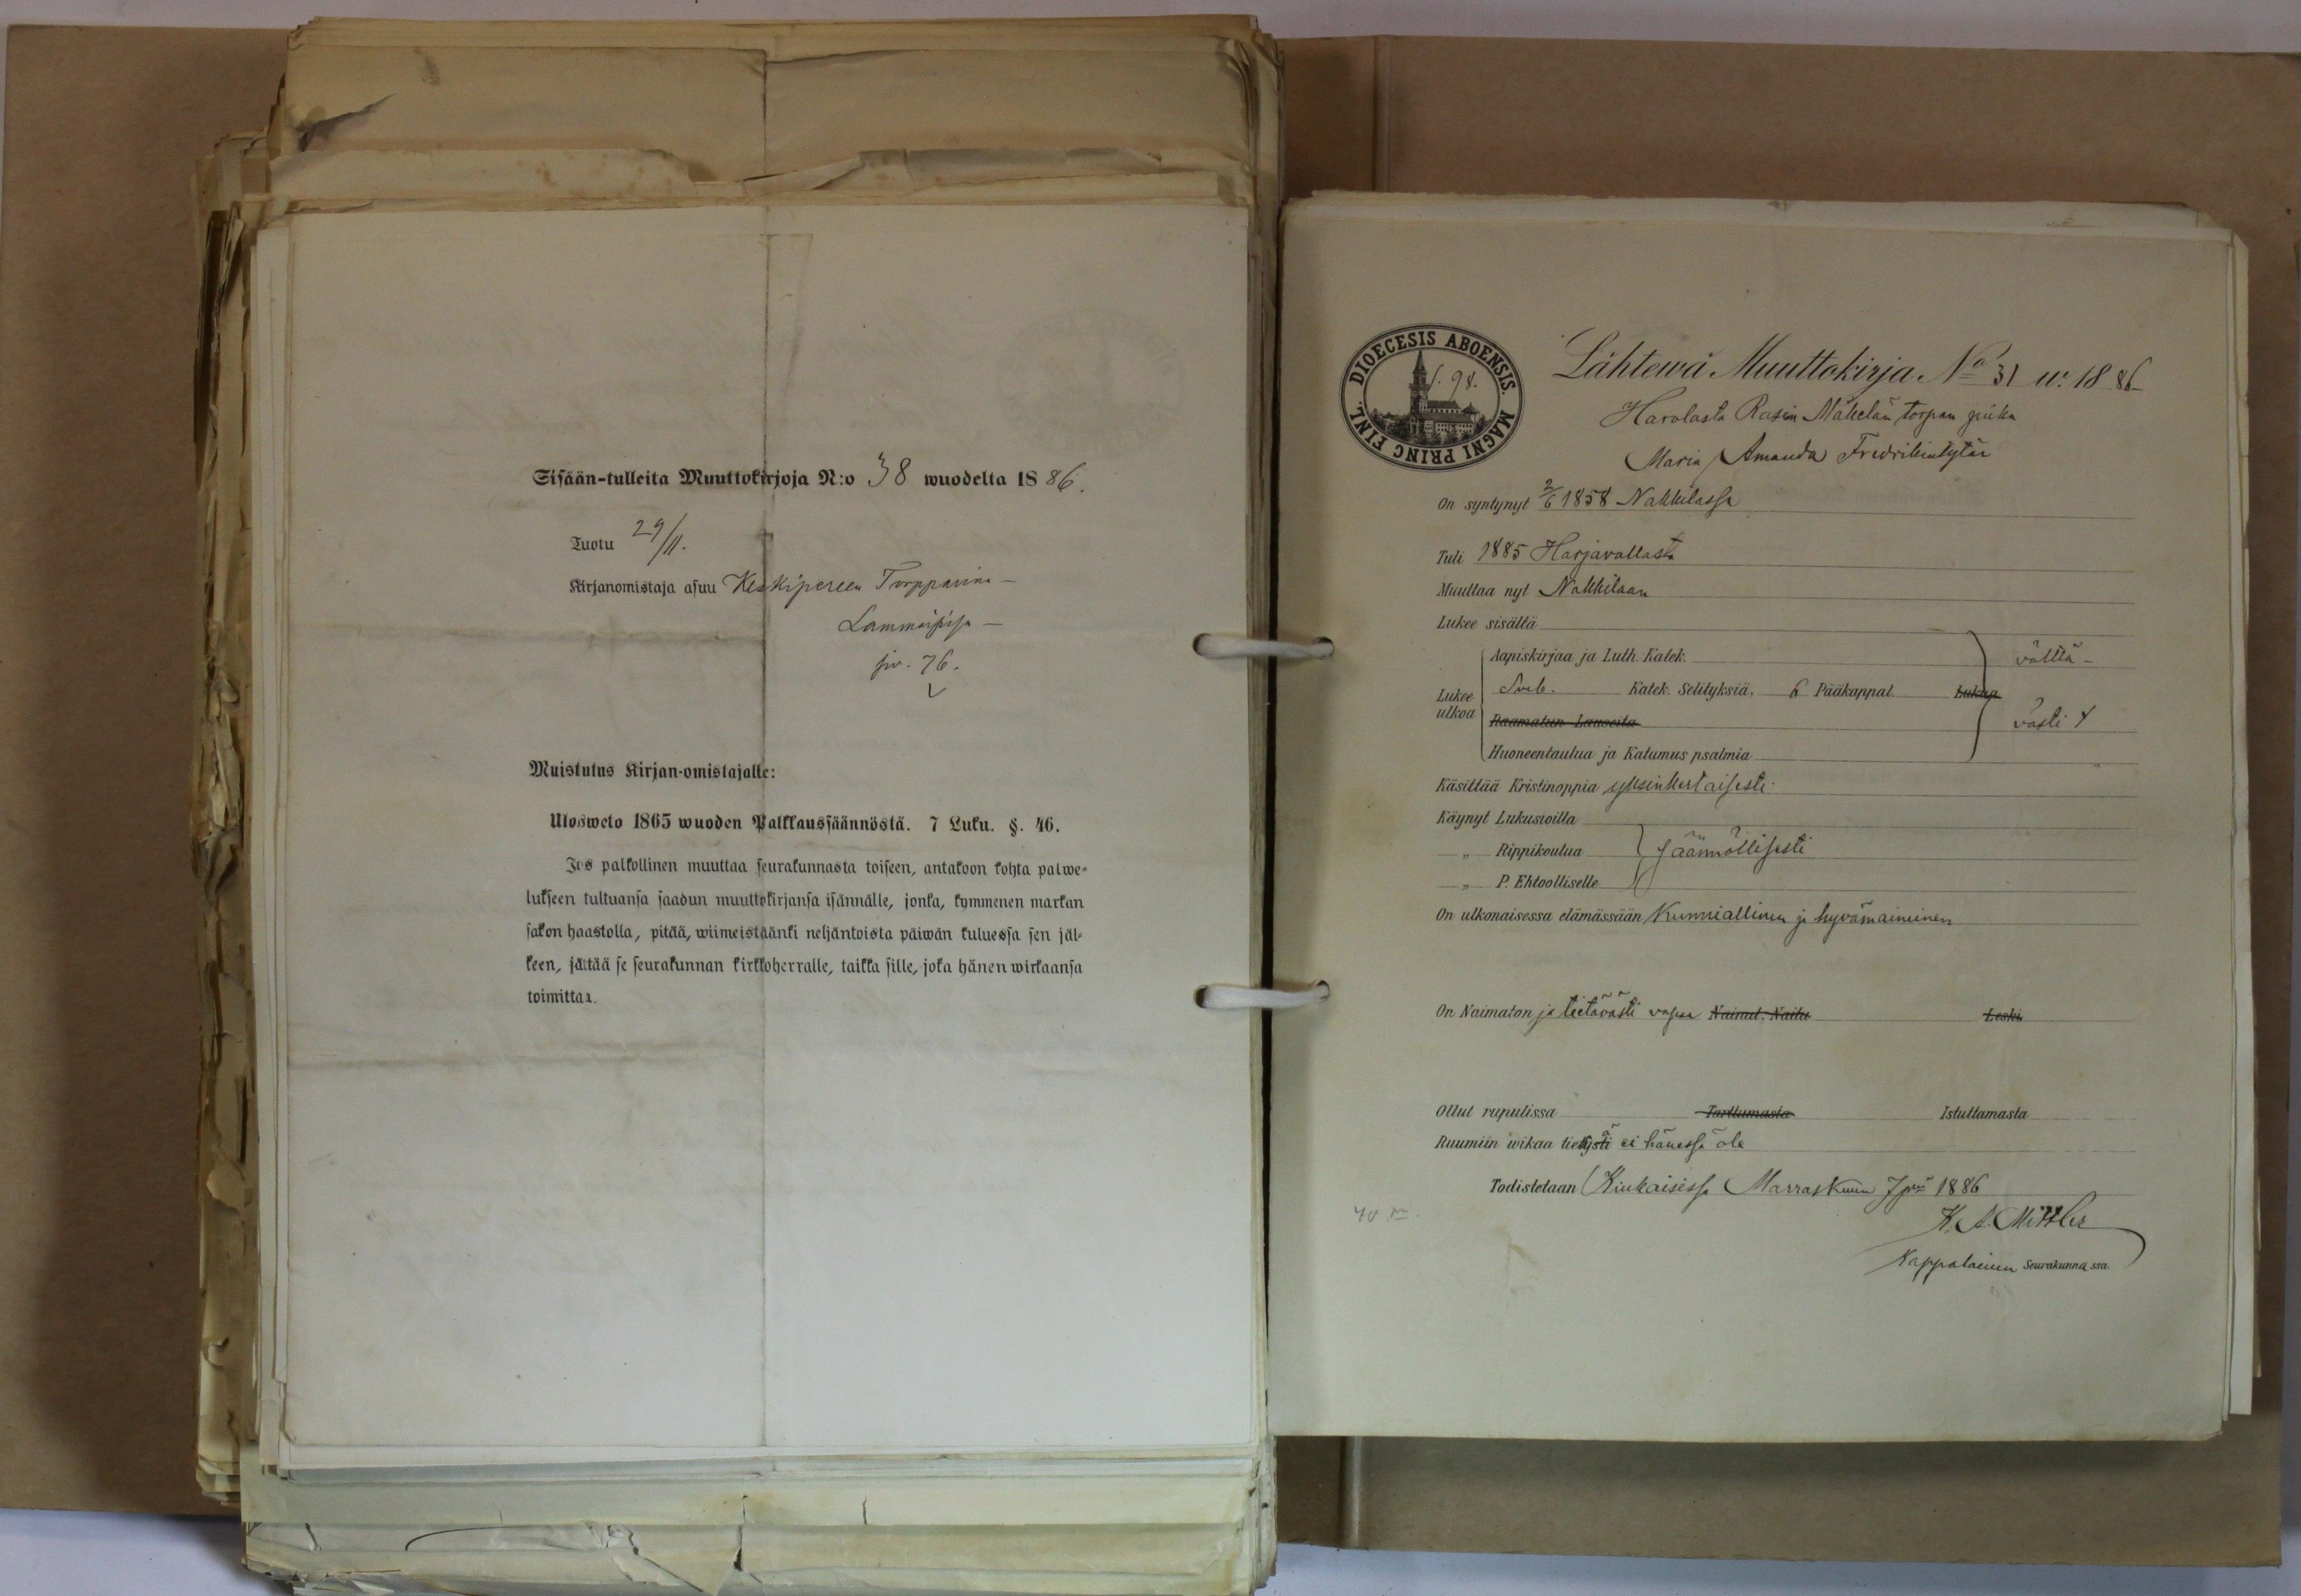 Sisään-tulleita Muuttokirjoja N:o 38 wuodelta 1886.
Tuotu 29/11.
Kirjanomistaja asuu Keskipereen Torpparina –
Lammaisissa –
siv. 76.
Muistutus Kirjan-omistajalle:
Ulosweto 1865 wuoden Palkkaussäännöstä. 7 Luku. §. 46.
Jos palkollinen muuttaa seurakunnasta toiseen, antakoon kohta palwe-
lukseen tultuansa saadun muuttokirjansa isännälle, jonka, kymmenen markan
sakon haastolla, pitää, wiimeistäänki neljäntoista päiwän kuluessa sen jäl-
keen, jättää se seurakunnan kirkkoherralle, taikka sille, joka hänen wirkaansa
toimittaa.
DIOECESIS ABOENSIS. MAGNI PRINC FINL.
S. 98.
Lähtewä Muuttokirja No 31 w. 1886
Harolasta Rasin Mäkelän torpan piika
Maria Amanda Fredrikintytär
On syntynyt 2/6 1858 Nakkilassa
Tuli 1885 Harjavallasta
Muuttaa nyt Nakkilaan
Lukee sisältä
Aapiskirjaa ja Luth. Katek. välttä-
Lukee ulkoa Sveb. Katek. Selityksiä. 6 Pääkappal. Lukua
Raamatun Lauseita västi
Huoneentaulua ja Katumus psalmia
Käsittää Kristinoppia yksinkertaisesti
Käynyt Lukusioilla
„ Rippikoulua säännöllisesti
„ P. Ehtoolliselle
On ulkonaisessa elämässään Kunniallinen ja hyvämaineinen
On Naimaton ja tietävästi vapaa Nainut. Naitu Leski
Ollut rupulissa Tarttumasta Istuttamasta
Ruumiin wikaa tiettysti ei hänessä ole
Todistetaan Kiukaisissa Marraskuun 7 pnä 1886
K. A. Mittler
Kappalainen Seurakunnassa.